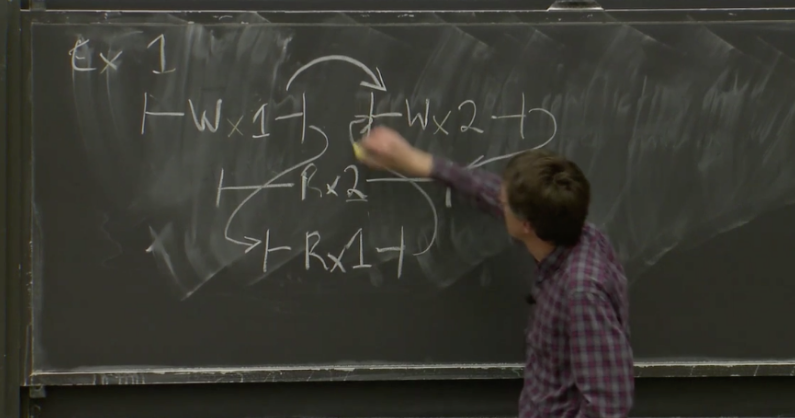 Ex 1
|-Wx1-| |-Wx2-|
|-Rx2-|
|-Rx1-|